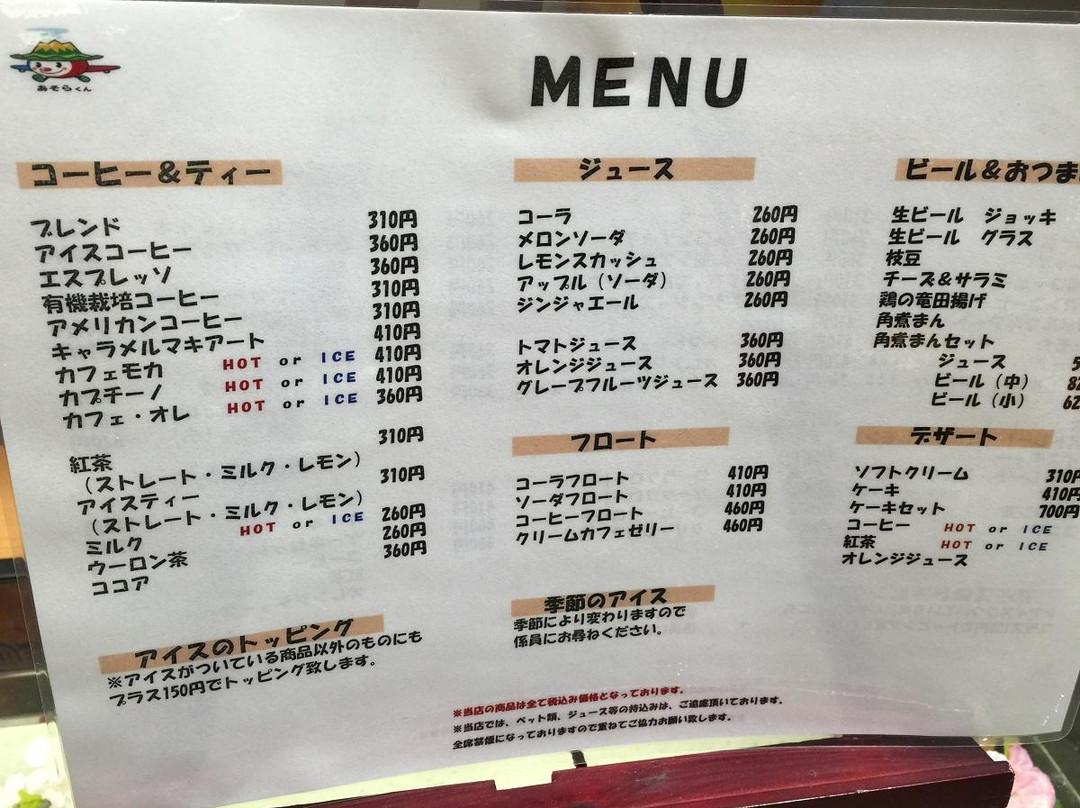 あそらくん
MENU
コーヒー＆ティー
ブレンド 310円
アイスコーヒー 360円
エスプレッソ 360円
有機栽培コーヒー 310円
アメリカンコーヒー 310円
キャラメルマキアート 410円
カフェモカ HOT or ICE 410円
カプチーノ HOT or ICE 410円
カフェ・オレ HOT or ICE 360円
紅茶 310円
（ストレート・ミルク・レモン）
アイスティー 310円
（ストレート・ミルク・レモン）
ミルク HOT or ICE 260円
ウーロン茶 260円
ココア 360円
アイスのトッピング
※アイスがついている商品以外のものにも
プラス150円でトッピング致します。
ジュース
コーラ 260円
メロンソーダ 260円
レモンスカッシュ 260円
アップル（ソーダ） 260円
ジンジャエール 260円
トマトジュース 360円
オレンジジュース 360円
グレープフルーツジュース 360円
フロート
コーラフロート 410円
ソーダフロート 410円
コーヒーフロート 460円
クリームカフェゼリー 460円
季節のアイス
季節により変わりますので
係員にお尋ねください。
ビール＆おつま
生ビール ジョッキ
生ビール グラス
枝豆
チーズ＆サラミ
鶏の竜田揚げ
角煮まん
角煮まんセット
ジュース 5
ビール（中） 82
ビール（小） 62
デザート
ソフトクリーム 310円
ケーキ 410円
ケーキセット 700円
コーヒー HOT or ICE
紅茶 HOT or ICE
オレンジジュース
※当店の商品は全て税込み価格となっております。
※当店では、ペット類、ジュース等の持込みは、ご遠慮頂いております。
全席禁煙になっておりますので重ねてご協力お願い致します。